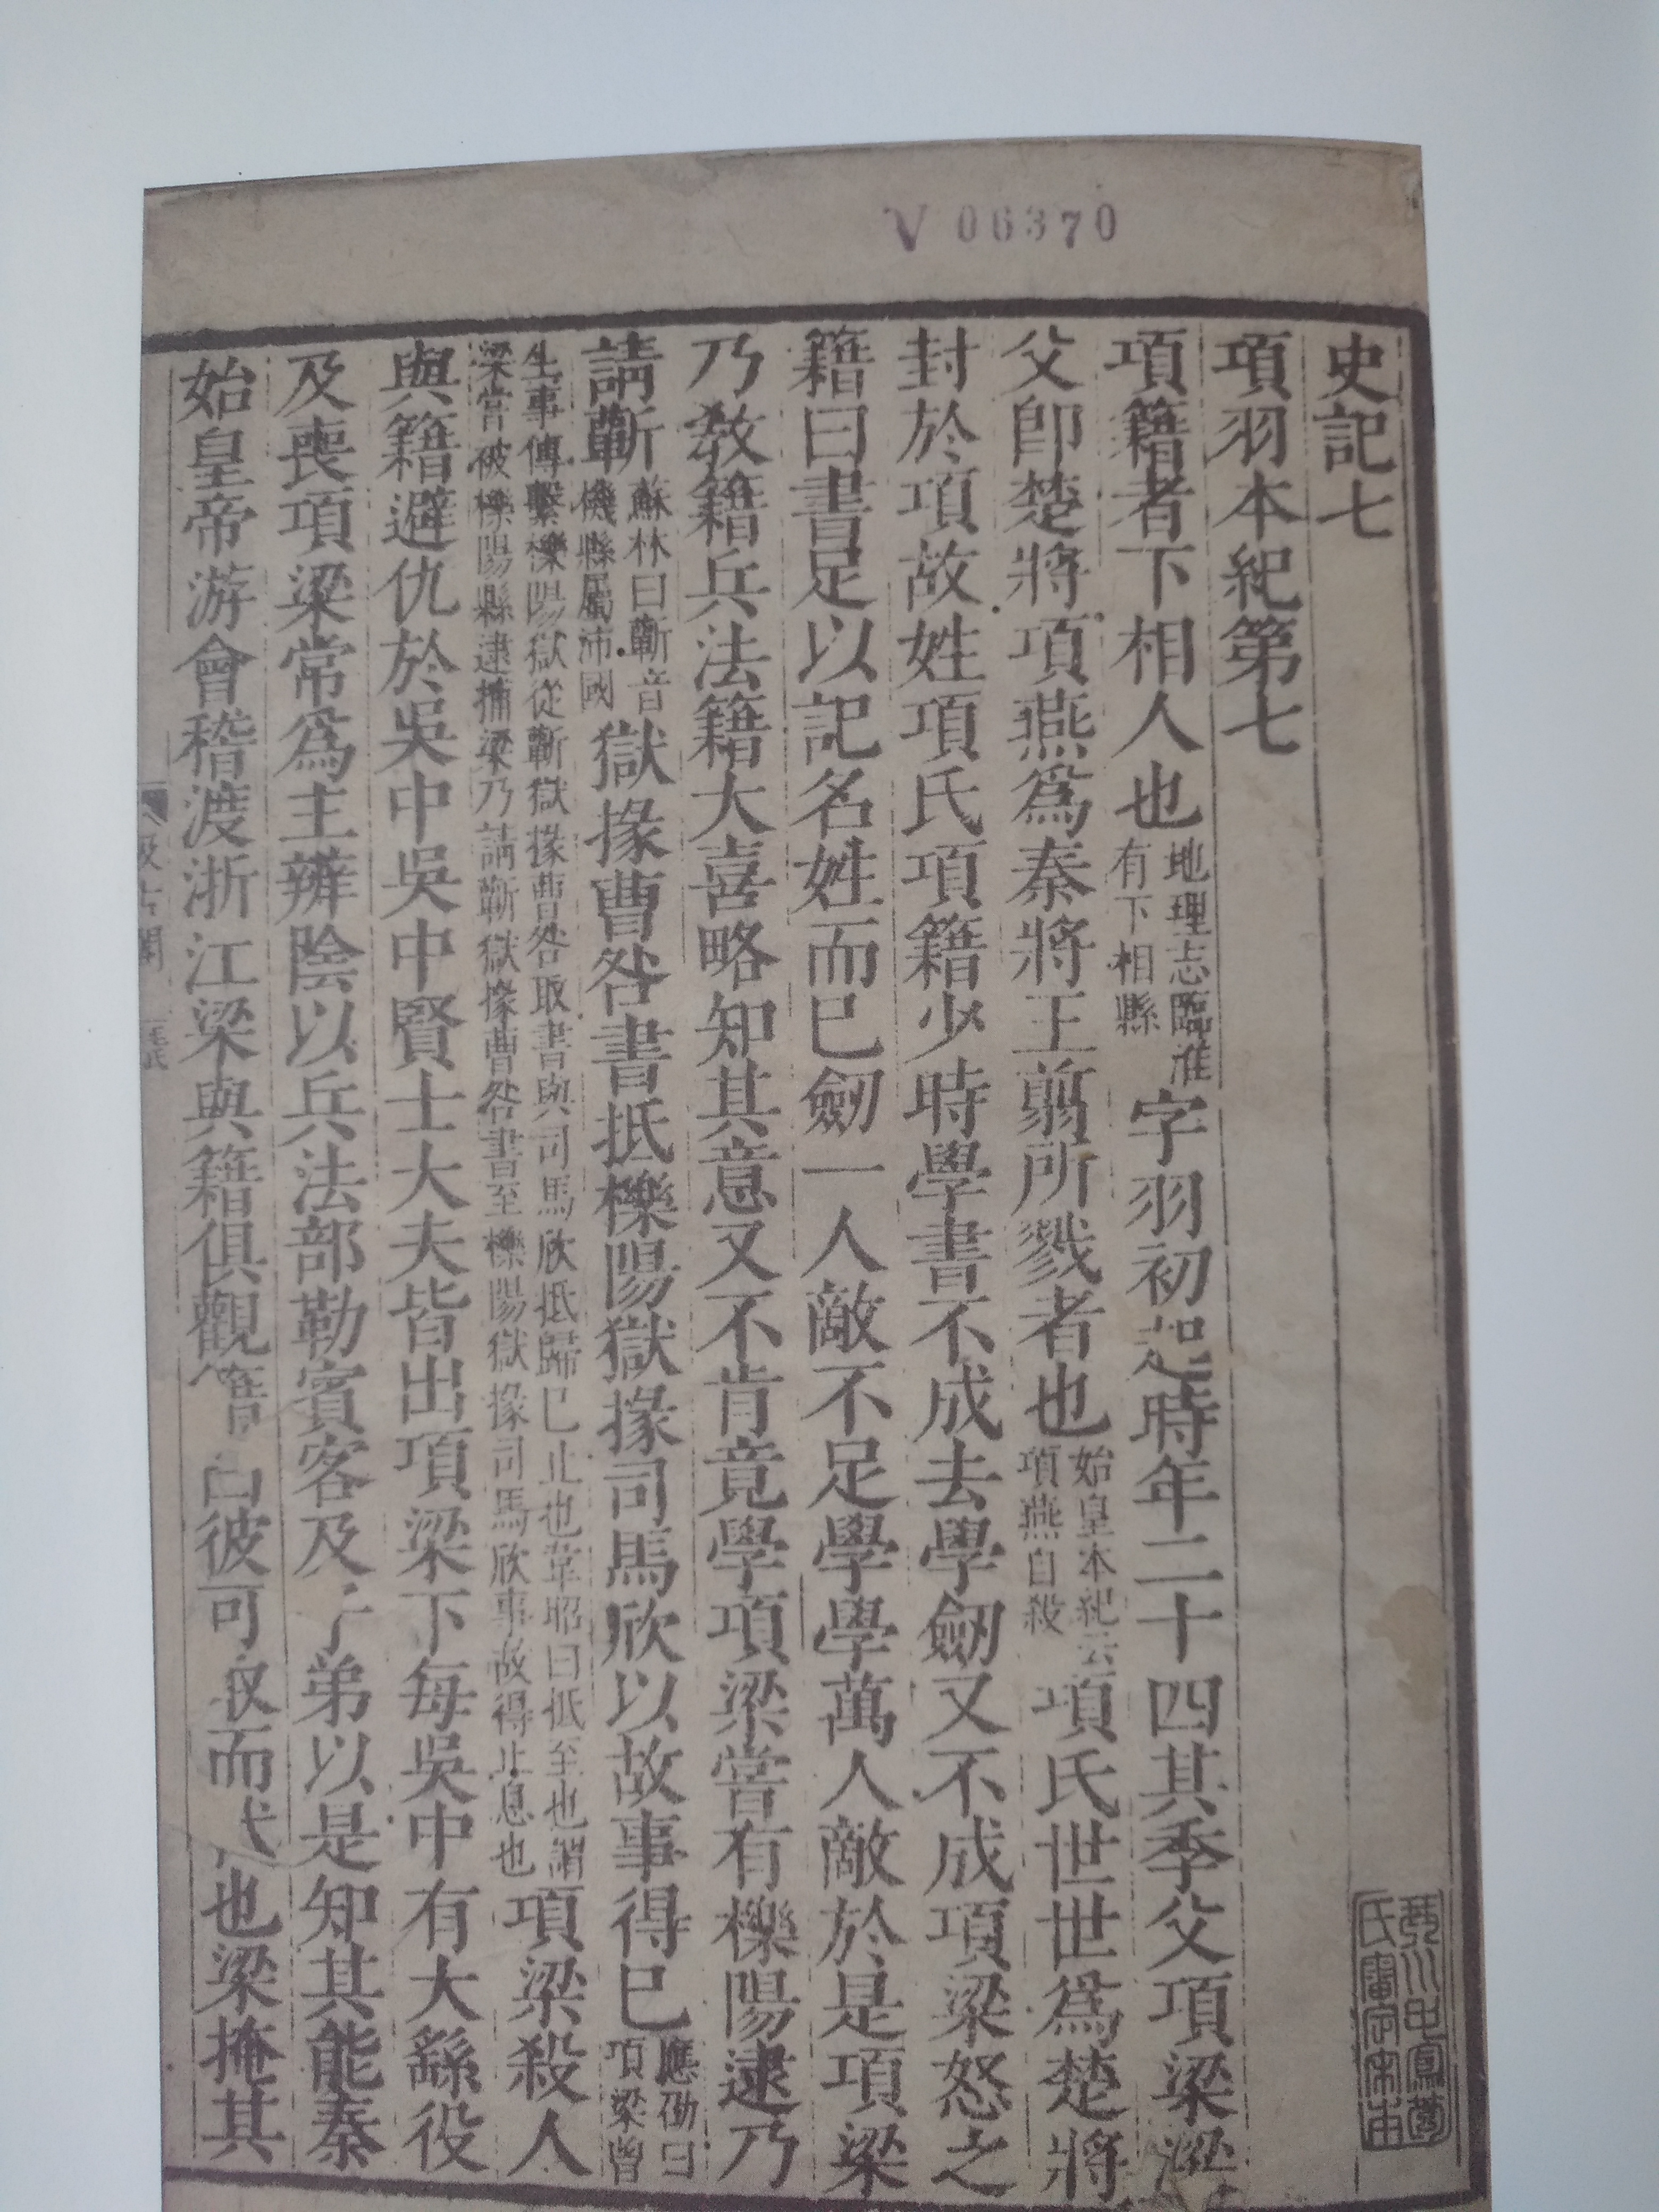 V 06370
史記七
項羽本紀第七
項籍者下相人也地理志臨淮有下相縣字羽初起時年二十四其季父項梁梁
父卽楚將項燕爲秦將王翦所戮者也始皇本紀云項燕自殺項氏世世爲楚將
封於項故姓項氏項籍少時學書不成去學劒又不成項梁怒之
籍曰書足以記名姓而已劒一人敵不足學學萬人敵於是項梁
乃敎籍兵法籍大喜略知其意又不肯竟學項梁嘗有櫟陽逮乃
請蘄蘇林曰蘄音機縣屬沛國獄掾曹咎書抵櫟陽獄掾司馬欣以故事得已應劭曰項梁曾
坐事傳繫櫟陽獄從蘄獄掾曹咎取書與司馬欣抵歸已止也韋昭曰抵至也謂
梁嘗被櫟陽縣逮捕梁乃請蘄獄掾曹咎書至櫟陽獄掾司馬欣事故得止息也項梁殺人
與籍避仇於吳中吳中賢士大夫皆出項梁下每吳中有大繇役
及喪項梁常爲主辨陰以兵法部勒賓客及子弟以是知其能秦
始皇帝游會稽渡浙江梁與籍俱觀籍曰彼可取而代也梁掩其